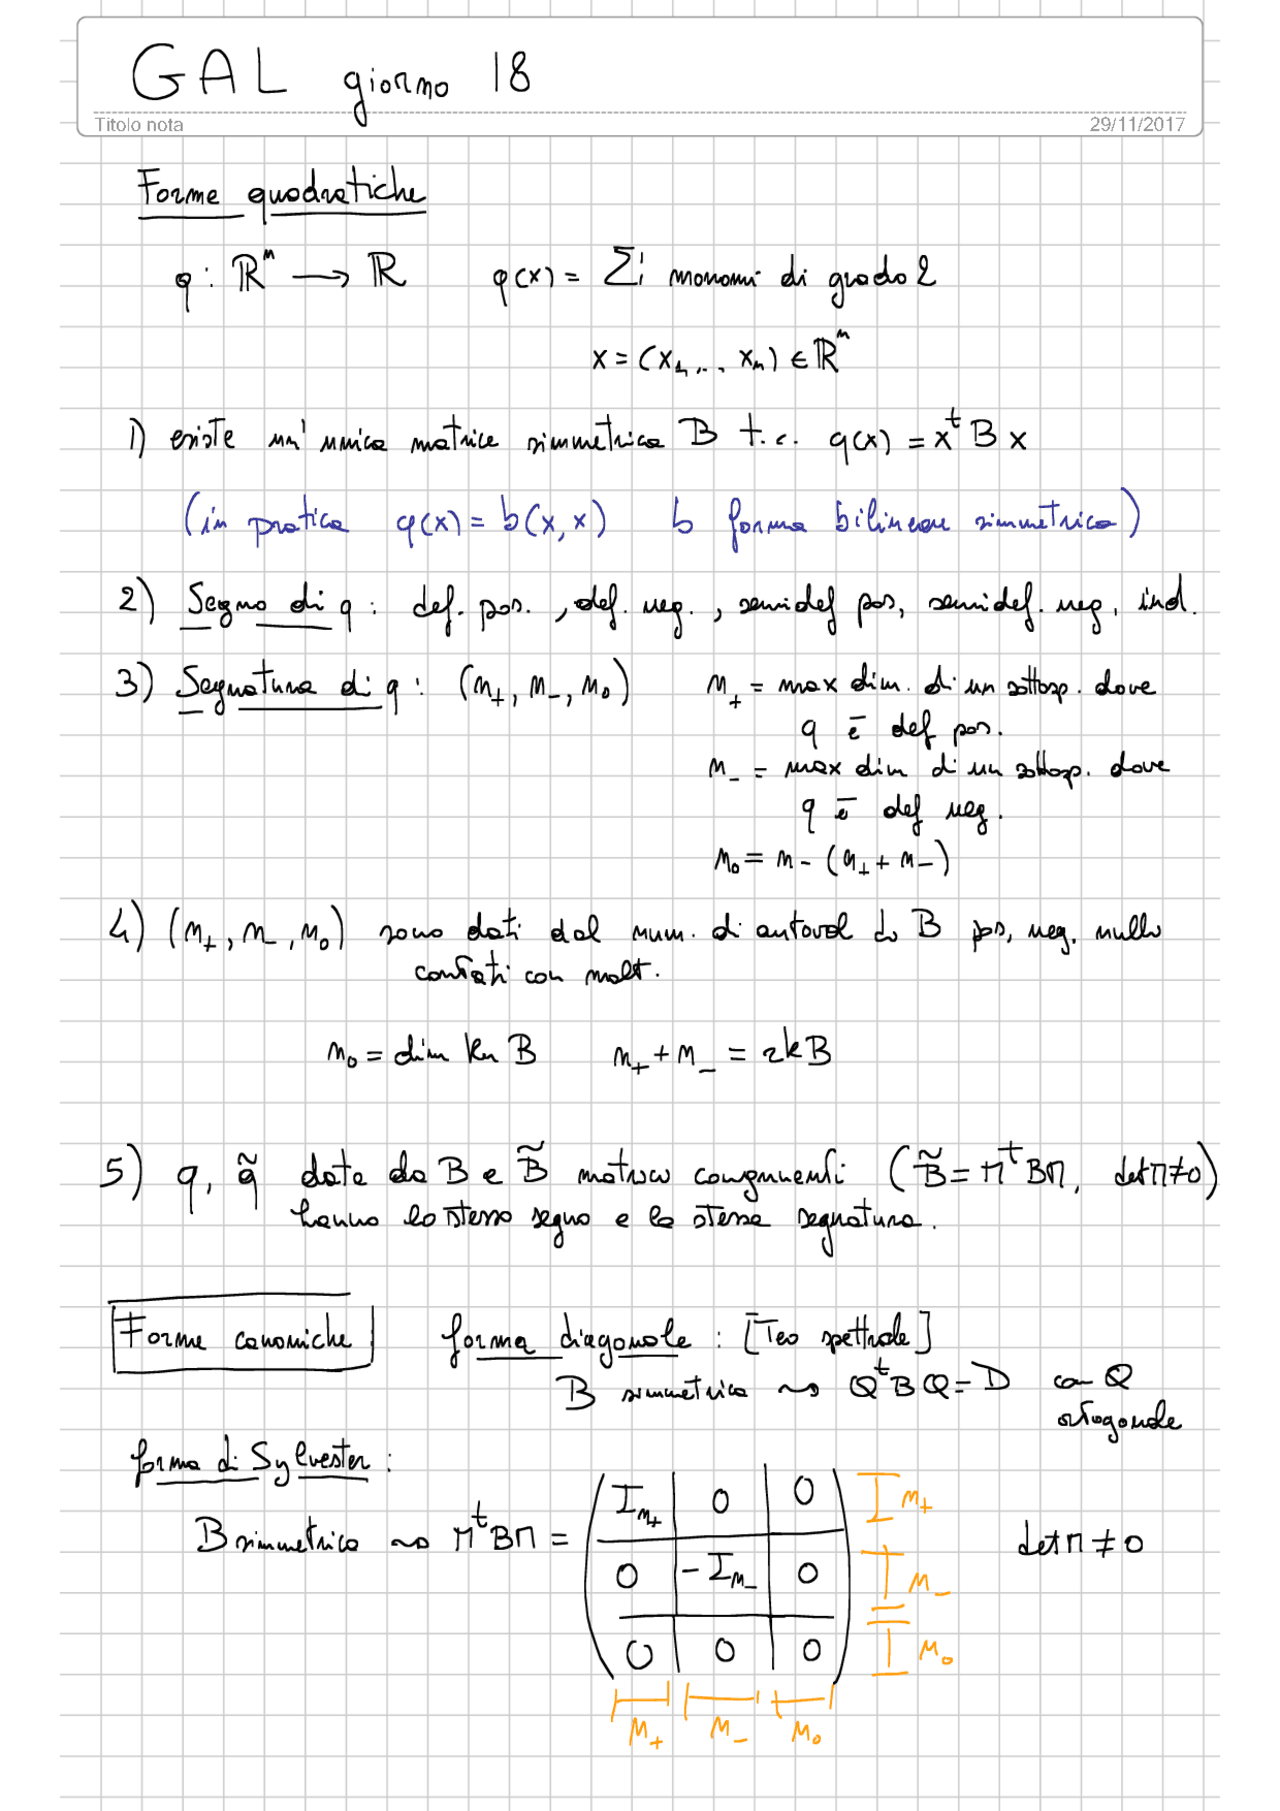 GAL giorno 18
Titolo nota 29/11/2017
Forme quadratiche
q : ℝⁿ → ℝ q(x) = Σ monomi di grado 2
x = (x₁, ... xₙ) ∈ ℝⁿ
1) esiste un' unica matrice simmetrica B t.c. q(x) = xᵗ B x
(in pratica q(x) = b(x,x) b forma bilineare simmetrica)
2) Segno di q : def. pos. , def. neg. , semidef pos, semidef. neg, ind.
3) Segnatura di q : (n₊, n₋, n₀) n₊ = max dim. di un sottosp. dove
q è def pos.
n₋ = max dim di un sottosp. dove
q è def neg.
n₀ = n - (n₊ + n₋)
4) (n₊, n₋, n₀) sono dati dal num. di autoval di B pos, neg. nullo
contati con molt.
n₀ = dim ker B n₊ + n₋ = rk B
5) q, q̃ date da B e B̃ matrici congruenti (B̃ = Mᵗ B M, det M ≠ 0)
hanno lo stesso segno e la stessa segnatura.
Forme canoniche forma diagonale : [Teo spettrale]
B simmetrica ⇝ Qᵗ B Q = D con Q
ortogonale
forma di Sylvester :
B simmetrica ⇝ Mᵗ B M = det M ≠ 0
I_n₊ 0 0 n₊
0 -I_n₋ 0 n₋
0 0 0 n₀
n₊ n₋ n₀